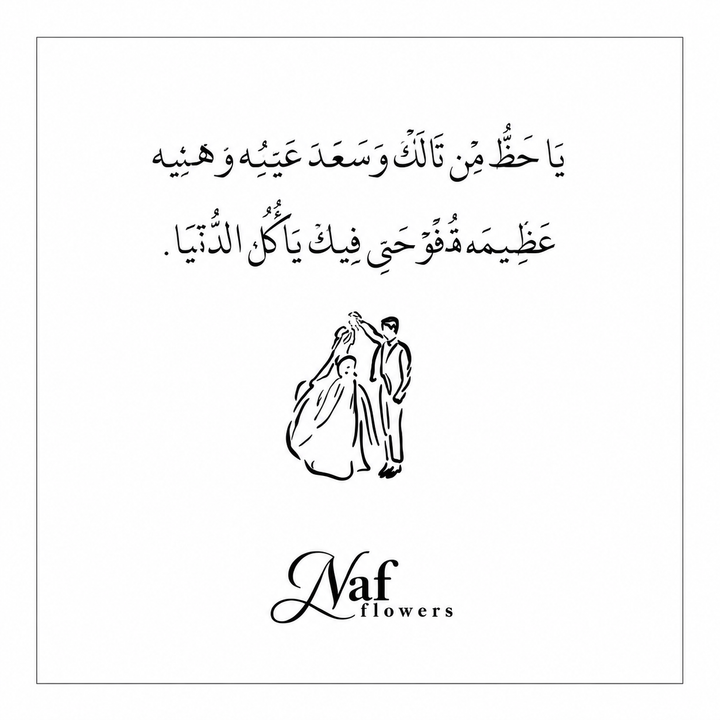 يَا حَظُّ مِن تَالَكْ وَسَعَدَ عَيَنُه وَهَنِيه
عَظِيمَه حَتِى فِيكْ يَأْكُل الدُّنْيَا.
Naf
flowers